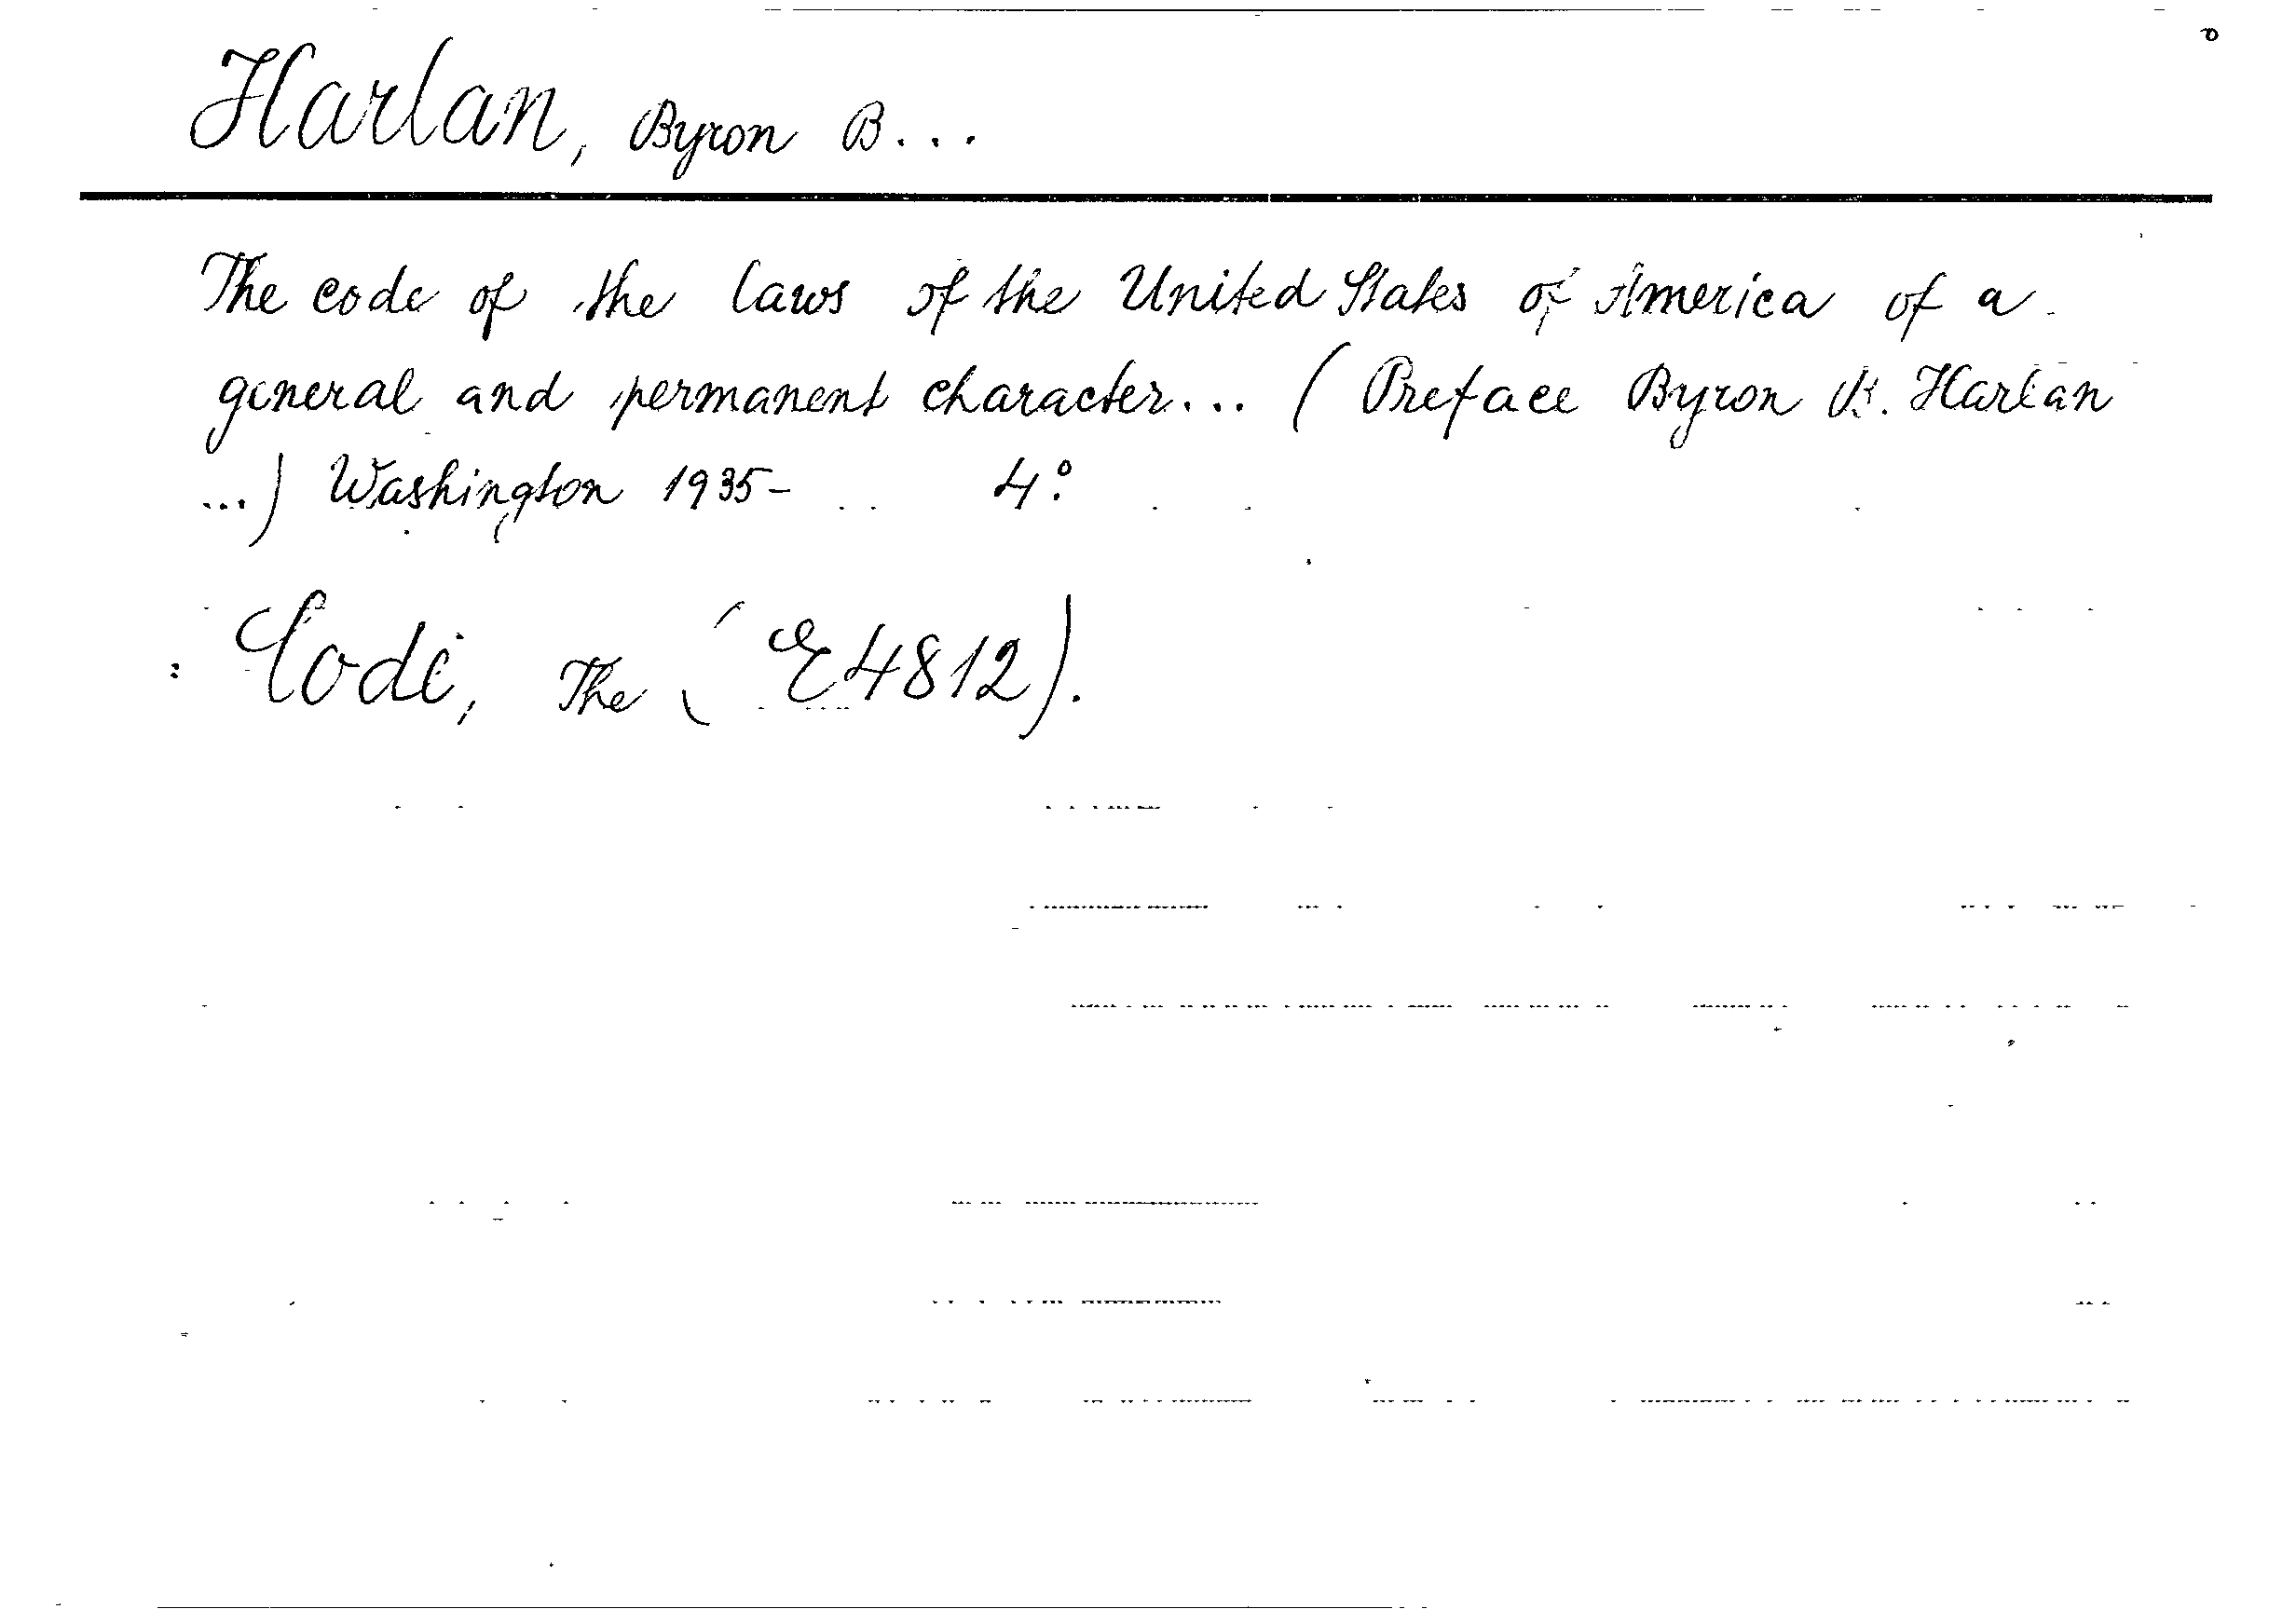 Harlan, Byron B...
The code of the laws of the United States of America of a
general and permanent character... (Preface Byron B. Harlan
...) Washington 1935- 4°
: Code, The (E4812).